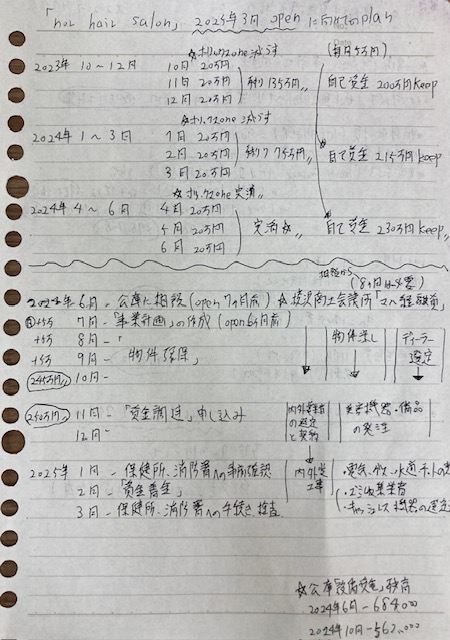 「nor hair salon」 2025年3月 open に向けてのplan
☆オリックzone 減らす (毎月5万円)
2023年 10〜12月 10月 20万円
11月 20万円 残り135万円〃 自己資金 200万円keep
12月 20万円
☆オリックzone 減らす
2024年 1〜3月 1月 20万円
2月 20万円 残り75万円〃 自己資金 215万円keep
3月 20万円
☆オリックzone 完済〃
2024年 4〜6月 4月 20万円
4月 20万円 完済☆〃 自己資金 230万円keep〃
6月 20万円
相談から
(8ヶ月は必要)
2024年 6月 - 公庫に相談 (open 7ヶ月前) ☆ 商工会議所「マル経融資」
+5万 7月 - 「事業計画」の作成 (open 6ヶ月前)
+5万 8月 - 〃 物件探し ディーラー選定
+5万 9月 - 物件確保」
245万円〃 10月 -
250万円〃 11月 - 「資金調達」申し込み 内外装業者の選定と契約 機器・備品の発注
12月 -
2025年 1月 - 保健所、消防署への事前確認 内外装工事 ・電気、ガス、水道、ネットの
2月 - 「資金着金」 ・ゴミ収集業者
3月 - 保健所、消防署への手続き、検査 ・キャッシュレス機器の選定
☆公庫「設備資金」残高
2024年6月 - 684000
2024年10月 - 562,000